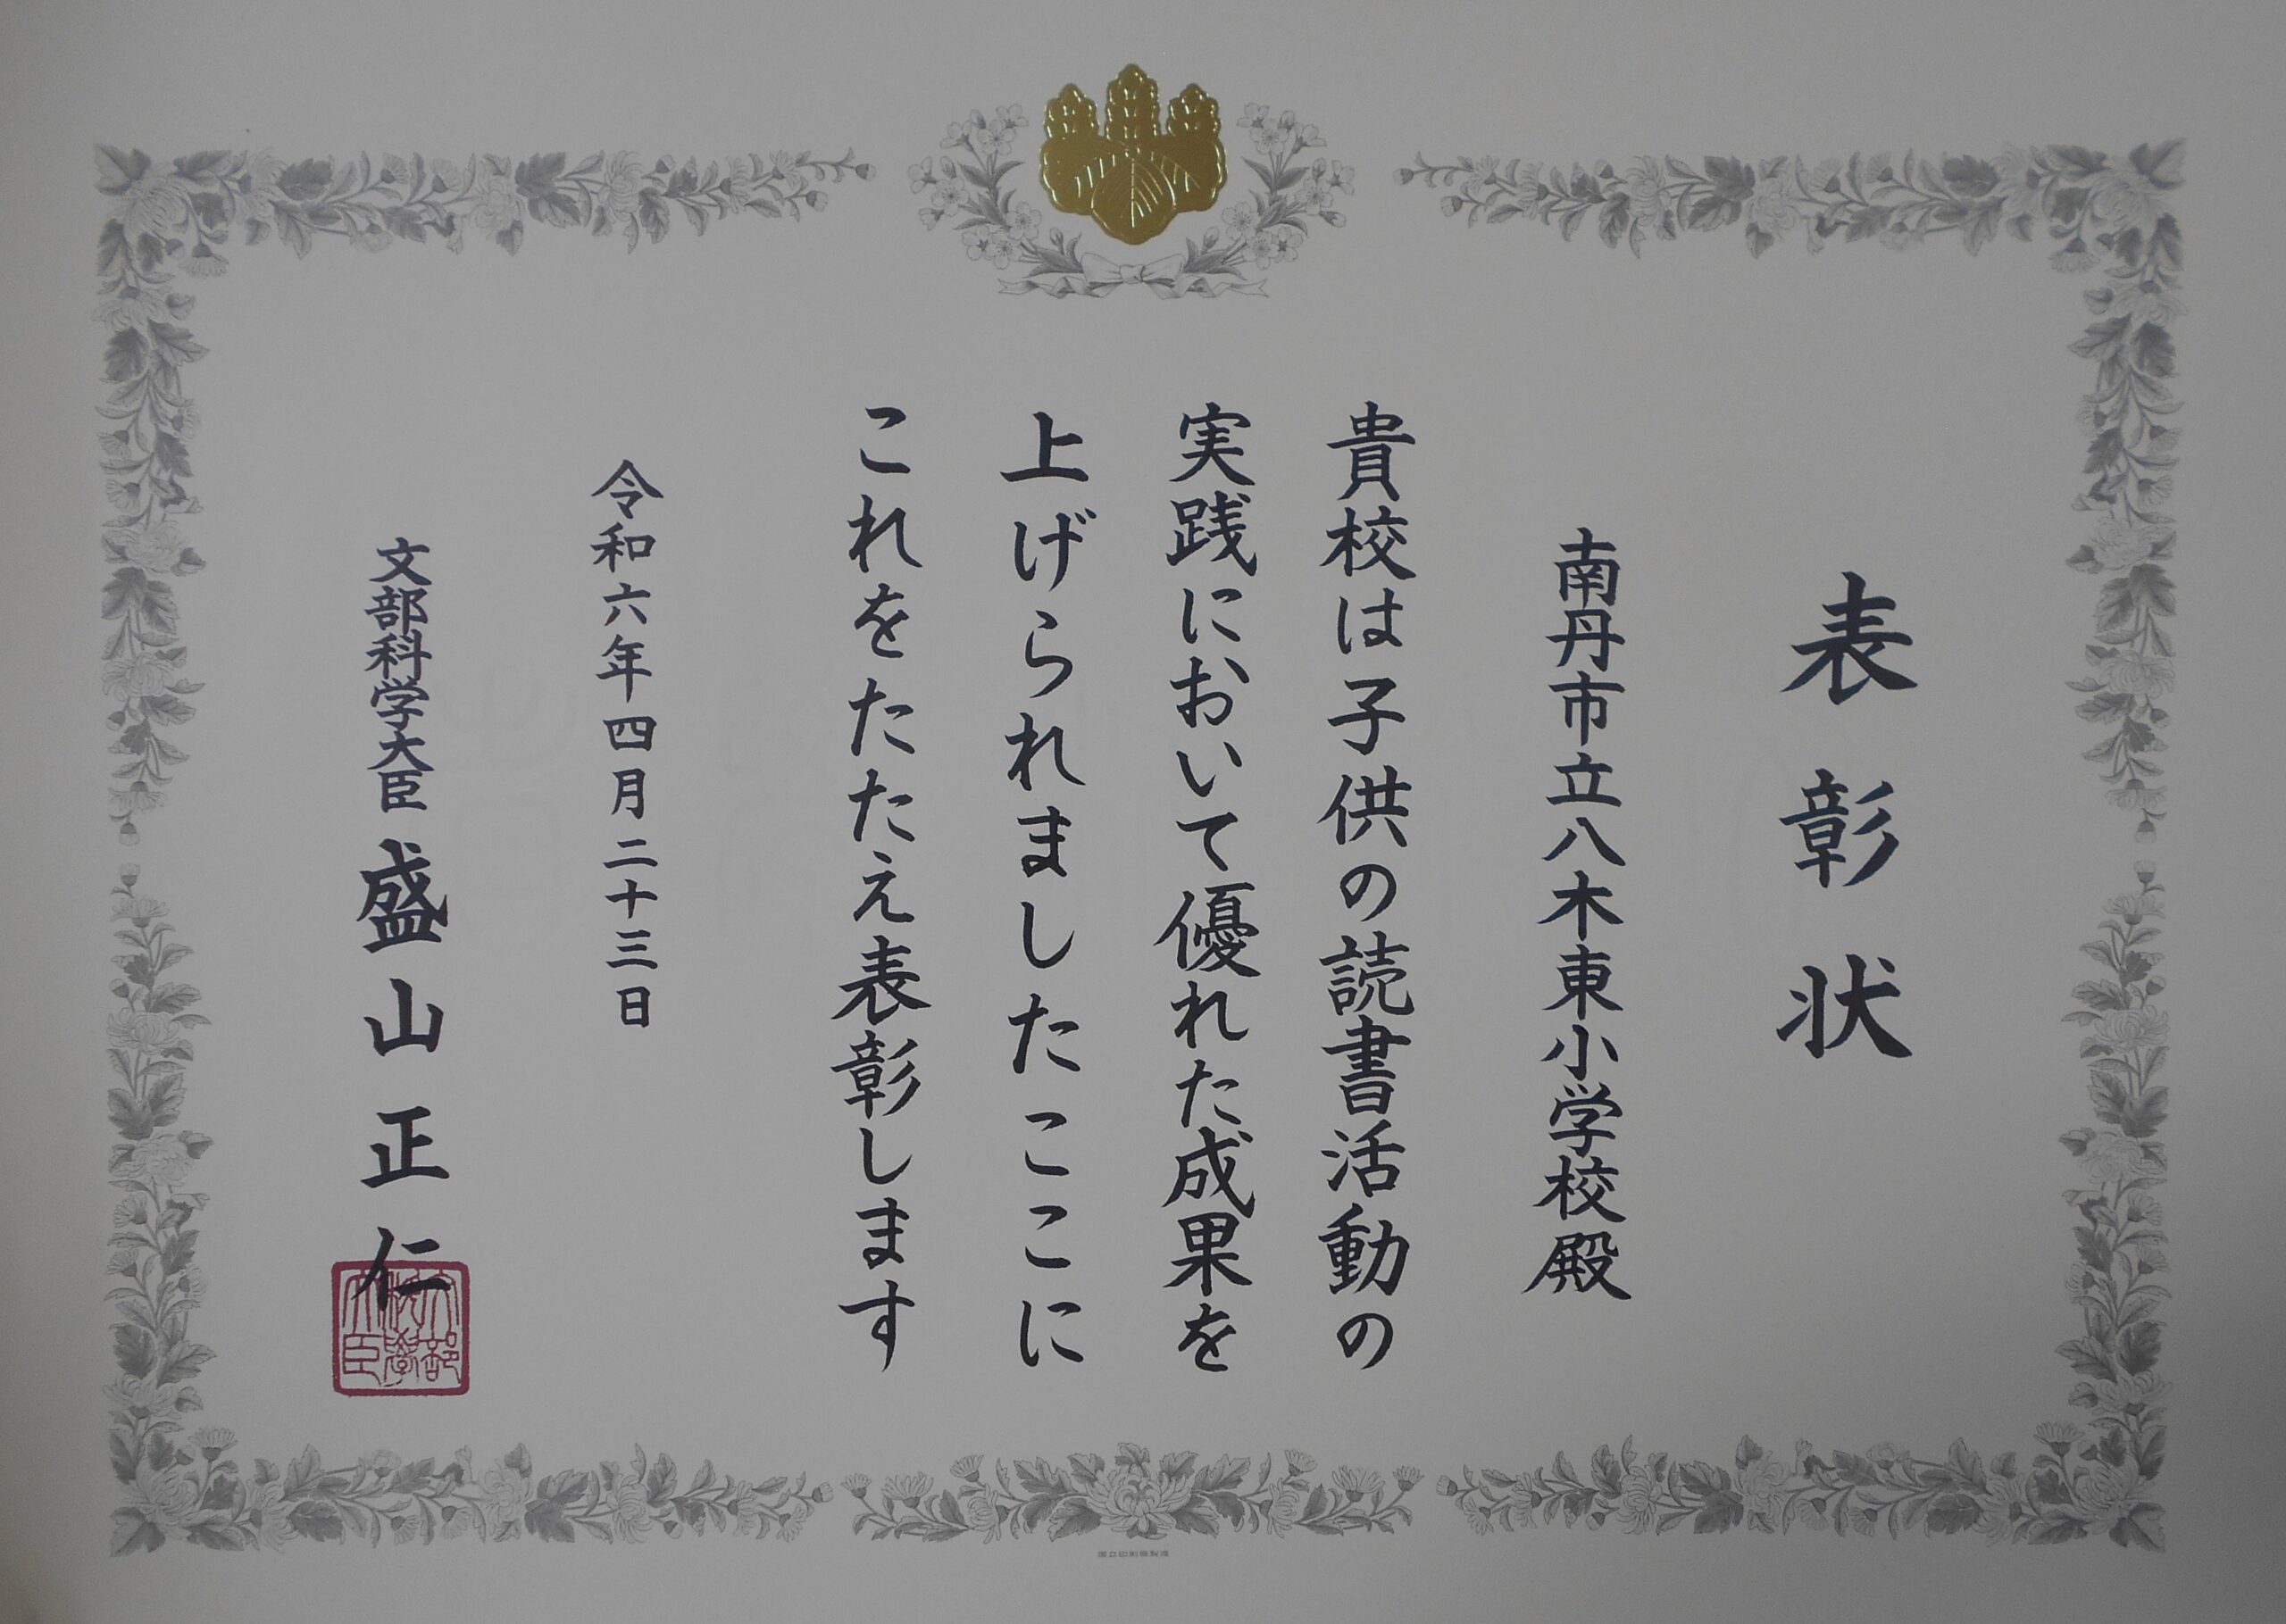 表彰状
南丹市立八木東小学校殿
貴校は子供の読書活動の
実践において優れた成果を
上げられましたここに
これをたたえ表彰します
令和六年四月二十三日
文部科学大臣 盛山正仁
文部科学大臣
国立印刷局製造